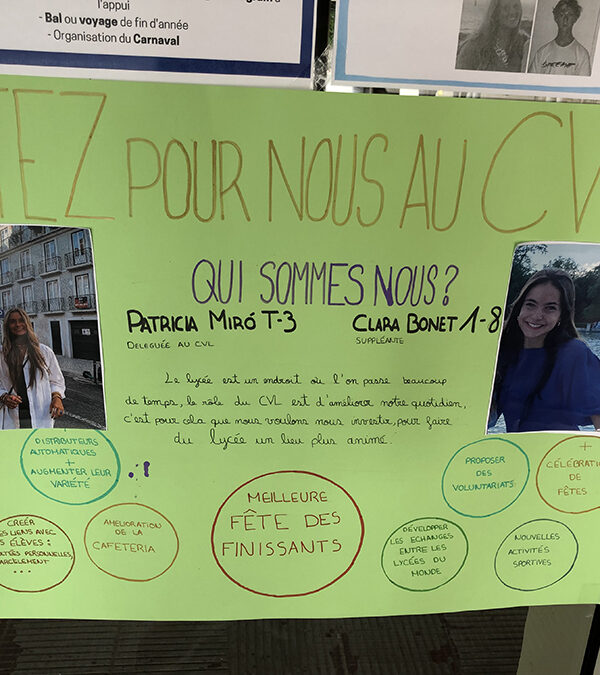 l'appui
- Bal ou voyage de fin d'année
- Organisation du Carnaval
TEZ POUR NOUS AU CV
QUI SOMMES NOUS?
PATRICIA MIRÓ T-3
DELEGUÉE AU CVL
CLARA BONET 1-8
SUPPLÉANTE
Le lycée est un endroit où l'on passe beaucoup
de temps, le rôle du CVL est d'améliorer notre quotidien,
c'est pour cela que nous voulons nous investir, pour faire
du lycée un lieu plus animé.
DISTRIBUTEURS
AUTOMATIQUES
+
AUGMENTER LEUR
VARIÉTÉ
PROPOSER
DES
VOLUNTARIATS
+
CÉLÉBRATION
DE
FÊTES
CRÉER
ES LIENS AVEC
S ÉLÈVES :
PERSONNELLES,
ARCÈLEMENT
...
AMELIORATION
DE LA
CAFETERIA
MEILLEURE
FÊTE DES
FINISSANTS
DÉVELOPPER
LES ECHANGES
ENTRE LES
LYCÉES DU
MONDE
NOUVELLES
ACTIVITÉS
SPORTIVES